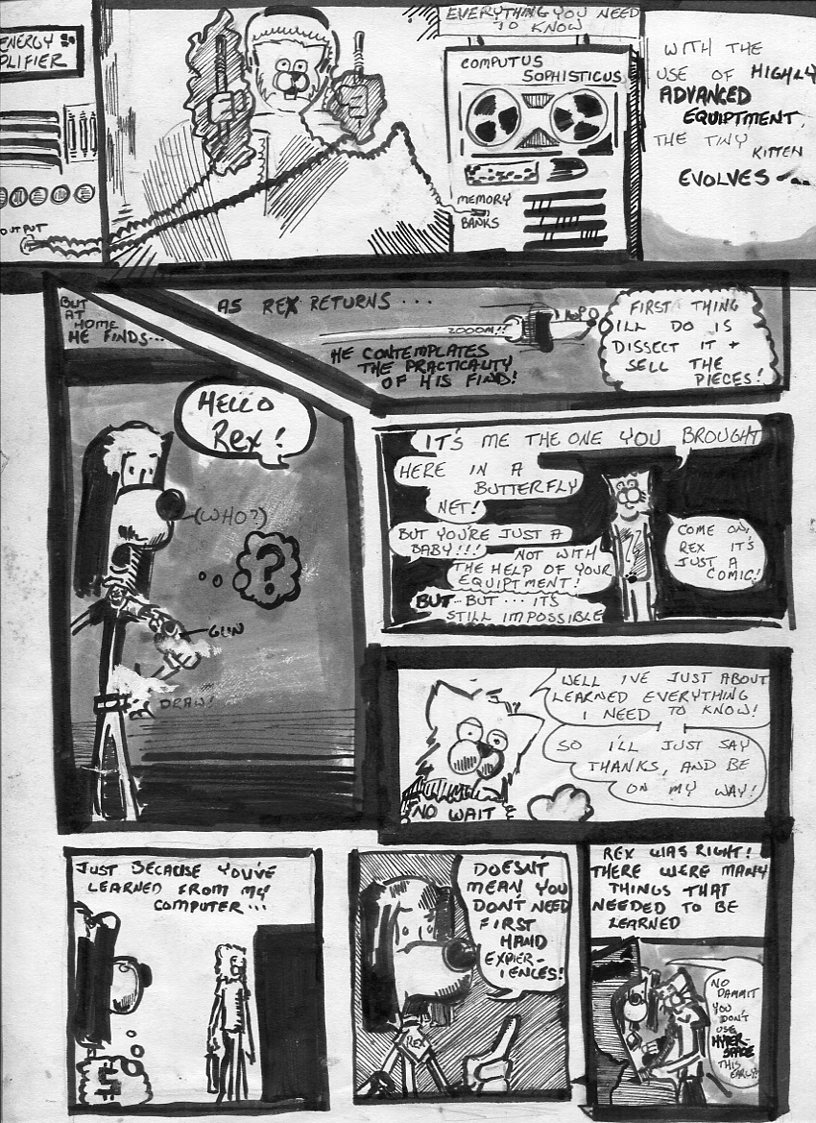 ENERGY
PLIFIER
OUTPUT
EVERYTHING YOU NEED
TO KNOW
COMPUTUS
SOPHISTICUS
MEMORY
BANKS
WITH THE
USE OF HIGHLY
ADVANCED
EQUIPTMENT,
THE TINY
KITTEN
EVOLVES
BUT
AT
HOME
HE FINDS...
AS REX RETURNS...
ZOOOM!!
HE CONTEMPLATES
THE PRACTICALITY
OF HIS FIND!
FIRST THING
ILL DO IS
DISSECT IT +
SELL THE
PIECES!
HELLO
REX!
(WHO?)
?
GUN
DRAW!
IT'S ME THE ONE YOU BROUGHT
HERE IN A
BUTTERFLY
NET!
BUT YOU'RE JUST A
BABY!!!
NOT WITH
THE HELP OF YOUR
EQUIPTMENT!
BUT.. BUT... IT'S
STILL IMPOSSIBLE
COME ON,
REX IT'S
JUST A
COMIC!
WELL I'VE JUST ABOUT
LEARNED EVERYTHING
I NEED TO KNOW!
SO I'LL JUST SAY
THANKS, AND BE
ON MY WAY!
NO WAIT
JUST BECAUSE YOU'VE
LEARNED FROM MY
COMPUTER...
DOESN'T
MEAN YOU
DON'T NEED
FIRST
HAND
EXPIER-
IENCES!
REX
REX WAS RIGHT!
THERE WERE MANY
THINGS THAT
NEEDED TO BE
LEARNED
NO
DAMMIT
YOU
DON'T
USE
HYPER-
SPACE
THIS
EARLY!